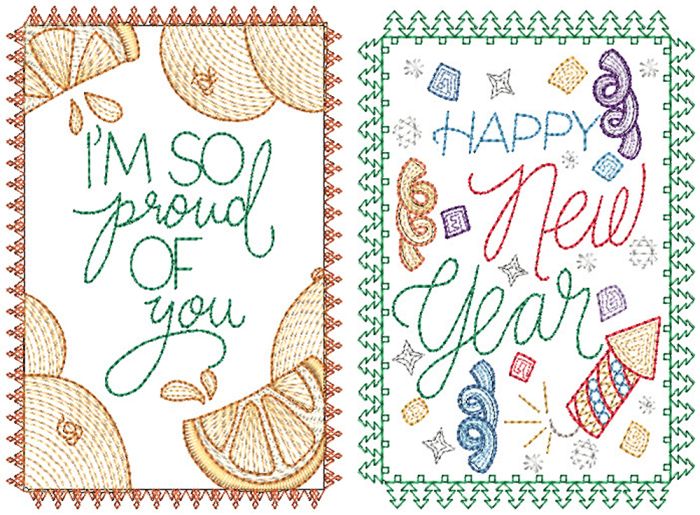 I'M SO
proud
OF
you
HAPPY
New
Year